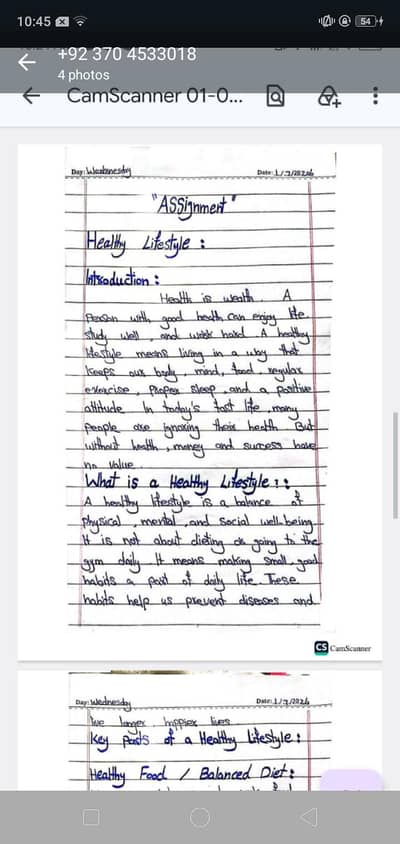 10:45
54
+92 370 4533018
4 photos
CamScanner 01-0...
Day: Wednesday Date: 1/7/2026
"ASSignment"
Healthy Lifestyle :
Introduction :
Health is wealth. A
Person with good health can enjoy life
study well, and work hard. A healthy
lifestyle means living in a way that
keeps our body, mind, food, regular
exercise, Proper sleep, and a positive
attitude. In today's fast life, many
People are ignoring their health. But
without health, money and success have
no value.
What is a Healthy Lifestyle ? :
A healthy lifestyle is a balance of
Physical, mental, and Social well-being.
It is not about dieting or going to the
gym daily. It means making small good
habits a part of daily life. These
habits help us prevent diseases and
CS CamScanner
Day: Wednesday Date: 1/7/2026
live longer, happier lives.
Key Parts of a Healthy Lifestyle :
Healthy Food / Balanced Diet :